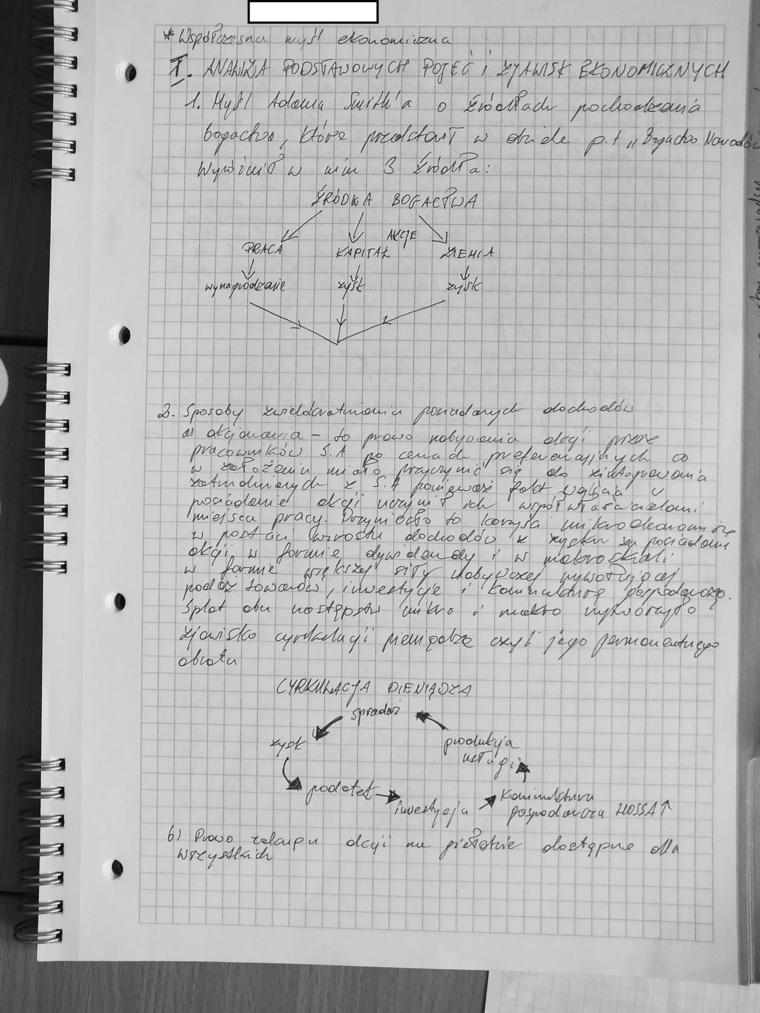 * Współczesna myśl ekonomiczna
I. ANALIZA PODSTAWOWYCH POJĘĆ I ZJAWISK EKONOMICZNYCH
1. Myśl Adama Smith'a o źródłach pochodzenia
bogactwa, które przedstawił w dziele p.t „Bogactwo Narodów
Wyróżnił w nim 3 źródła:
ŹRÓDŁA BOGACTWA
PRACA KAPITAŁ AKCJE ZIEMIA
wynagrodzenie zysk zysk
2. Sposoby zwielokrotnienia posiadanych dochodów
a) akcjonariat - to prawo nabywania akcji przez
pracowników S.A po cenach preferencyjnych co
w założeniu miało przyczynić się do zintegrowania
zatrudnionych z S.A ponieważ fakt
posiadanie akcji uczynił ich współwłaścicielami
miejsca pracy. Przyniosło to korzyści mikroekonomiczne
w postaci wzrostu dochodów z zysku za posiadanie
akcji w formie dywidendy i w makroskali
w formie większej siły nabywczej wywołującej
podaż towarów, inwestycje i koniunkturę gospodarczą.
Splot obu następstw mikro i makro wytworzyło
zjawisko cyrkulacji pieniądza czyli jego permanentnego
obrotu
CYRKULACJA PIENIĄDZA
sprzedaż
zysk
produkcja
usługi
podatek
inwestycja
Koniunktura
gospodarcza HOSSA ↑
b) Prawo zakupu akcji na giełdzie dostępne dla
wszystkich